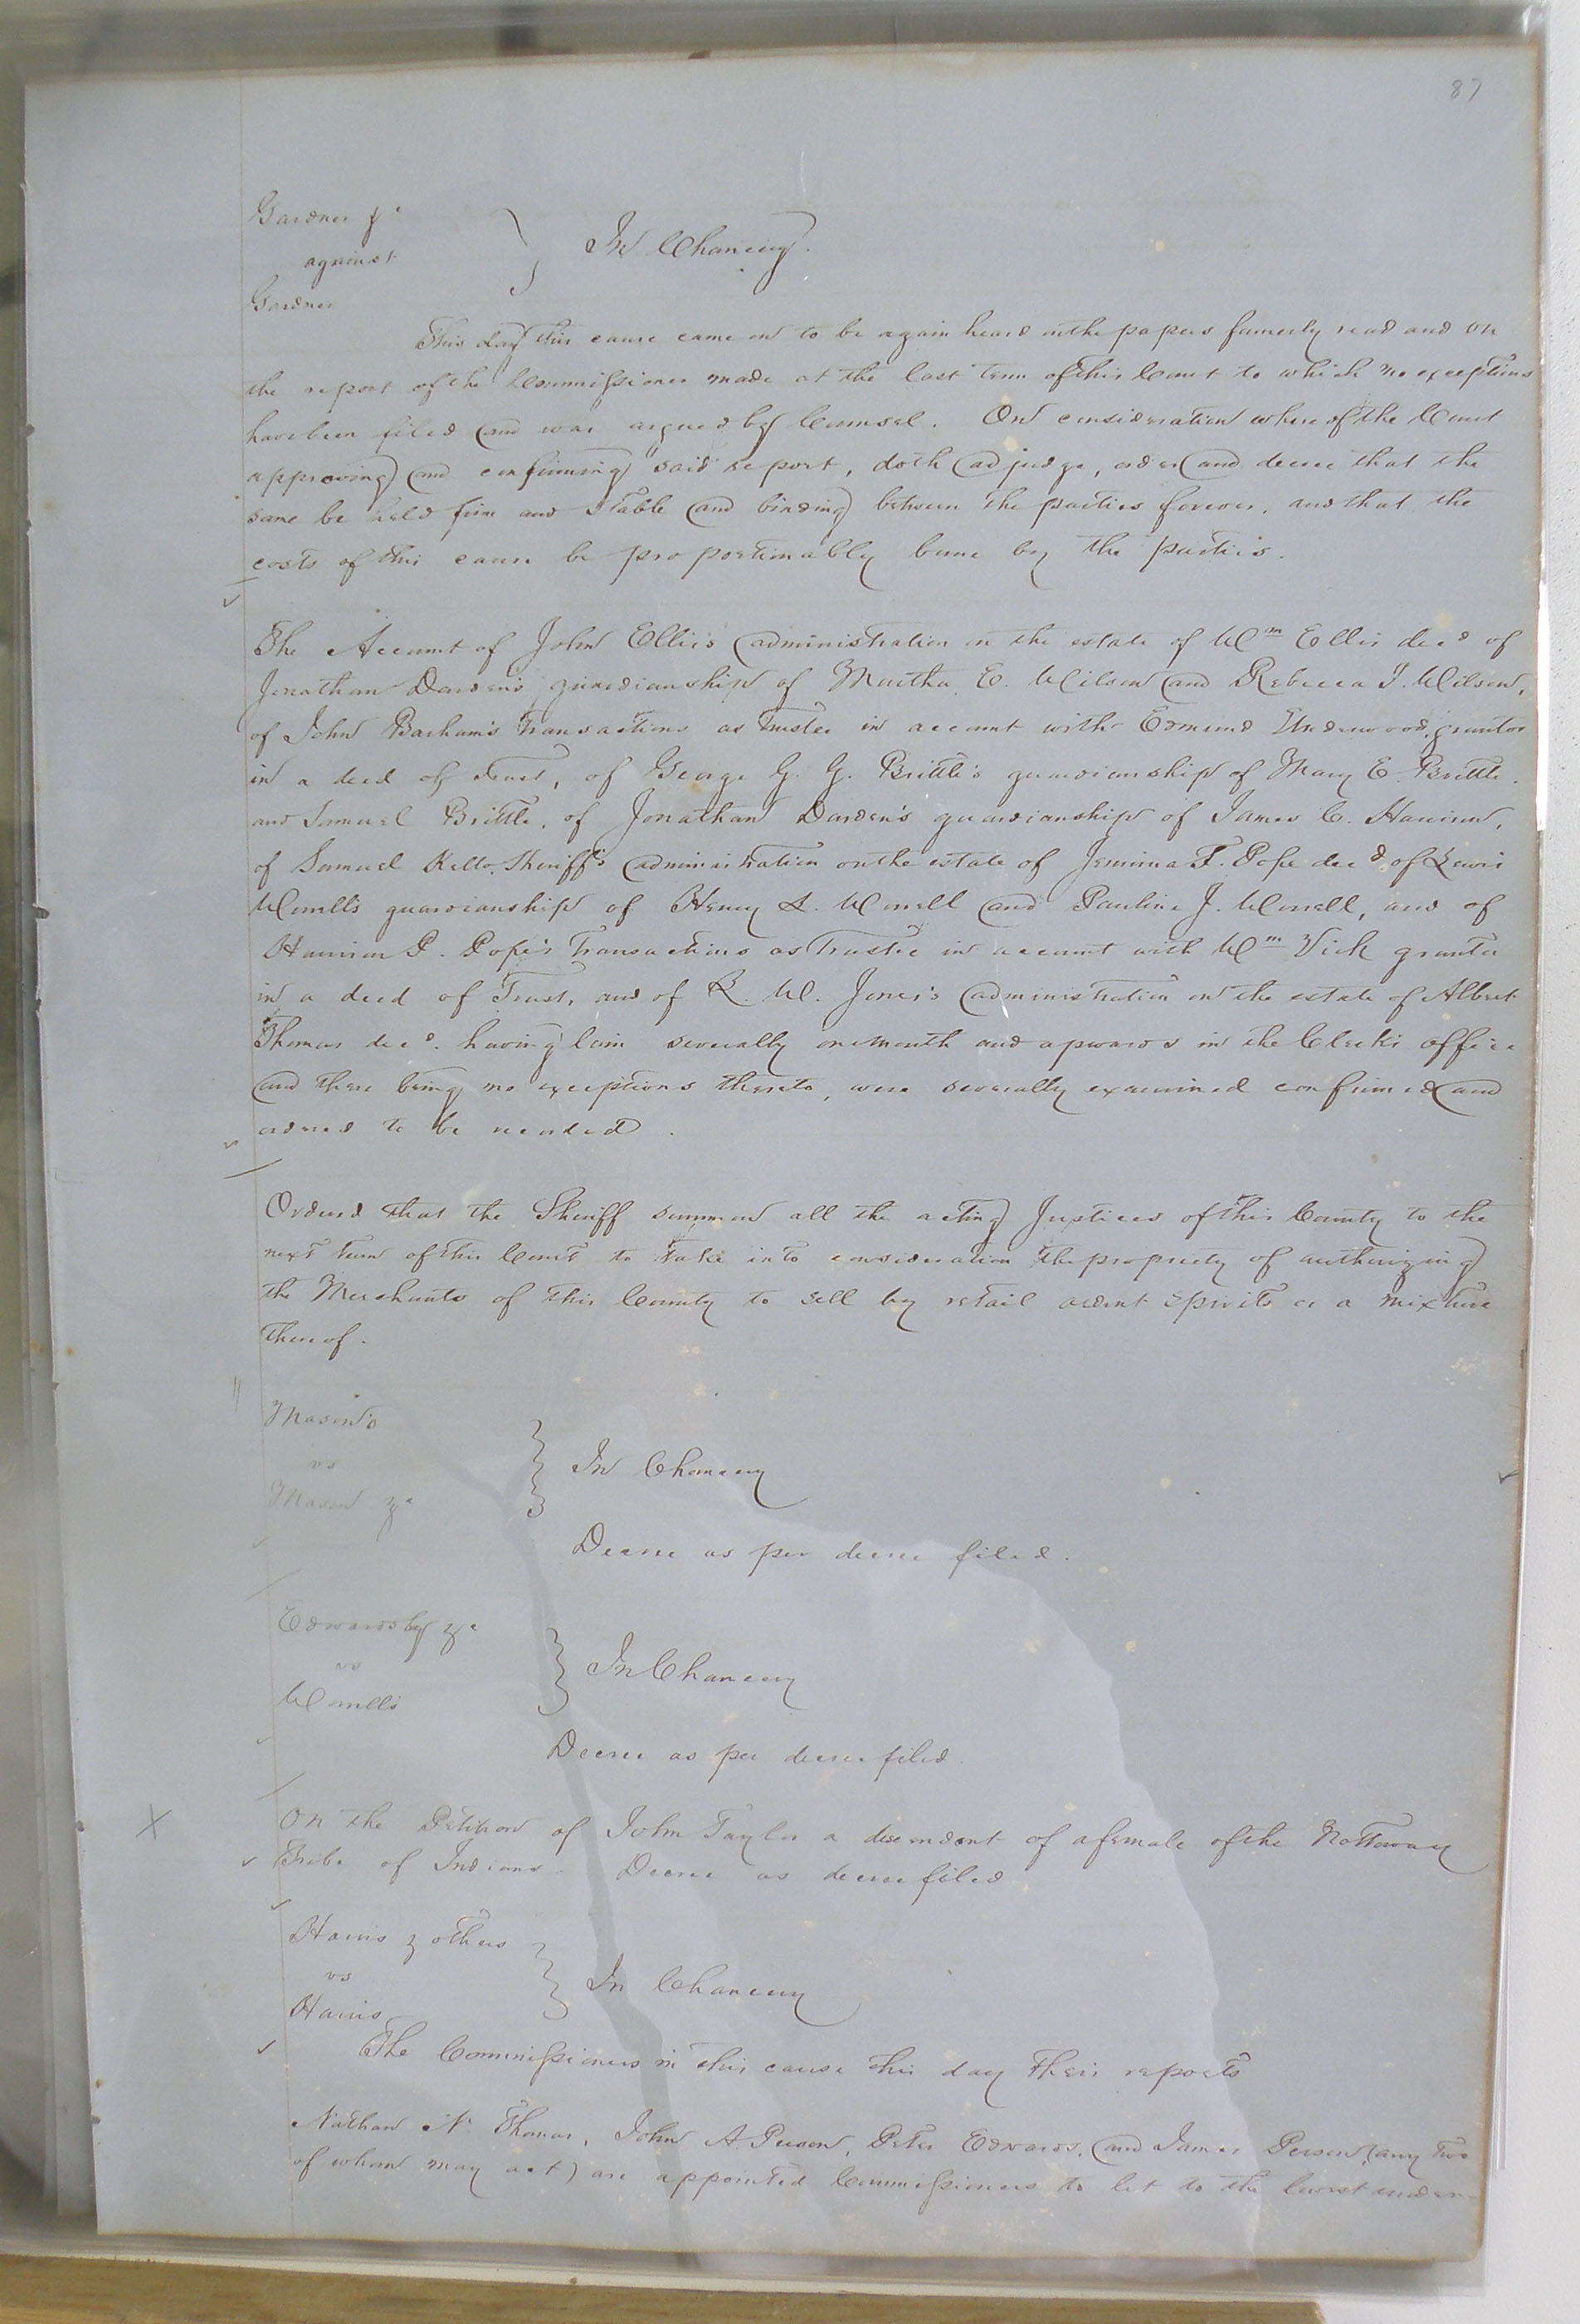 87
Gardner &c
against
Gardner
In Chancery.
This day this cause came on to be again heard on the papers formerly read and on
the report of the Commissioner made at the last term of this Court to which no exceptions
have been filed and was argued by Counsel. On consideration whereof the Court
approving and confirming said report, doth adjudge, order and decree that the
same be held firm and stable and binding between the parties forever, and that the
costs of this cause be proportionably borne by the parties.
The Account of John Ellis's administration on the estate of Wm Ellis decd of
Jonathan Darden's guardianship of Martha E. Wilson and Rebecca J. Wilson,
of John Barham's transactions as Trustee in account with Edmund Underwood, grantor
in a deed of trust, of George G. G. Brittle's guardianship of Mary E. Brittle
and Samuel Brittle, of Jonathan Darden's guardianship of James C. Harrison,
of Samuel Kello, Sheriff's administration on the estate of Jemima F. Pope decd of Lewis
Worrell's guardianship of Henry L. Worrell and Pauline J. Worrell, and of
Harrison P. Pope's transactions as Trustee in account with Wm Vick grantor
in a deed of Trust, and of R. W. Jones's administration on the estate of Albert
Thomas decd. having lain severally one month and upwards in the Clerk's office
and there being no exceptions thereto, were severally examined confirmed and
ordered to be recorded.
Ordered that the Sheriff summon all the acting Justices of this County to the
next term of this Court to take into consideration the propriety of authorizing
the Merchants of this County to sell by retail ardent spirits or a mixture
thereof.
Mason's
vs
Mason &c
In Chancery
Decree as per decree filed.
Edwards by &c
vs
Worrells
In Chancery
Decree as per decree filed.
On the Petition of John Taylor a descendant of a female of the Nottoway
Tribe of Indians. Decree as decree filed
Harris & others
vs
Harris
In Chancery
The Commissioners in this cause this day their reports
Nathan N. Thomas, John A. Person, Peter Edwards, and James Person (any two
of whom may act) are appointed Commissioners to let to the lowest under-